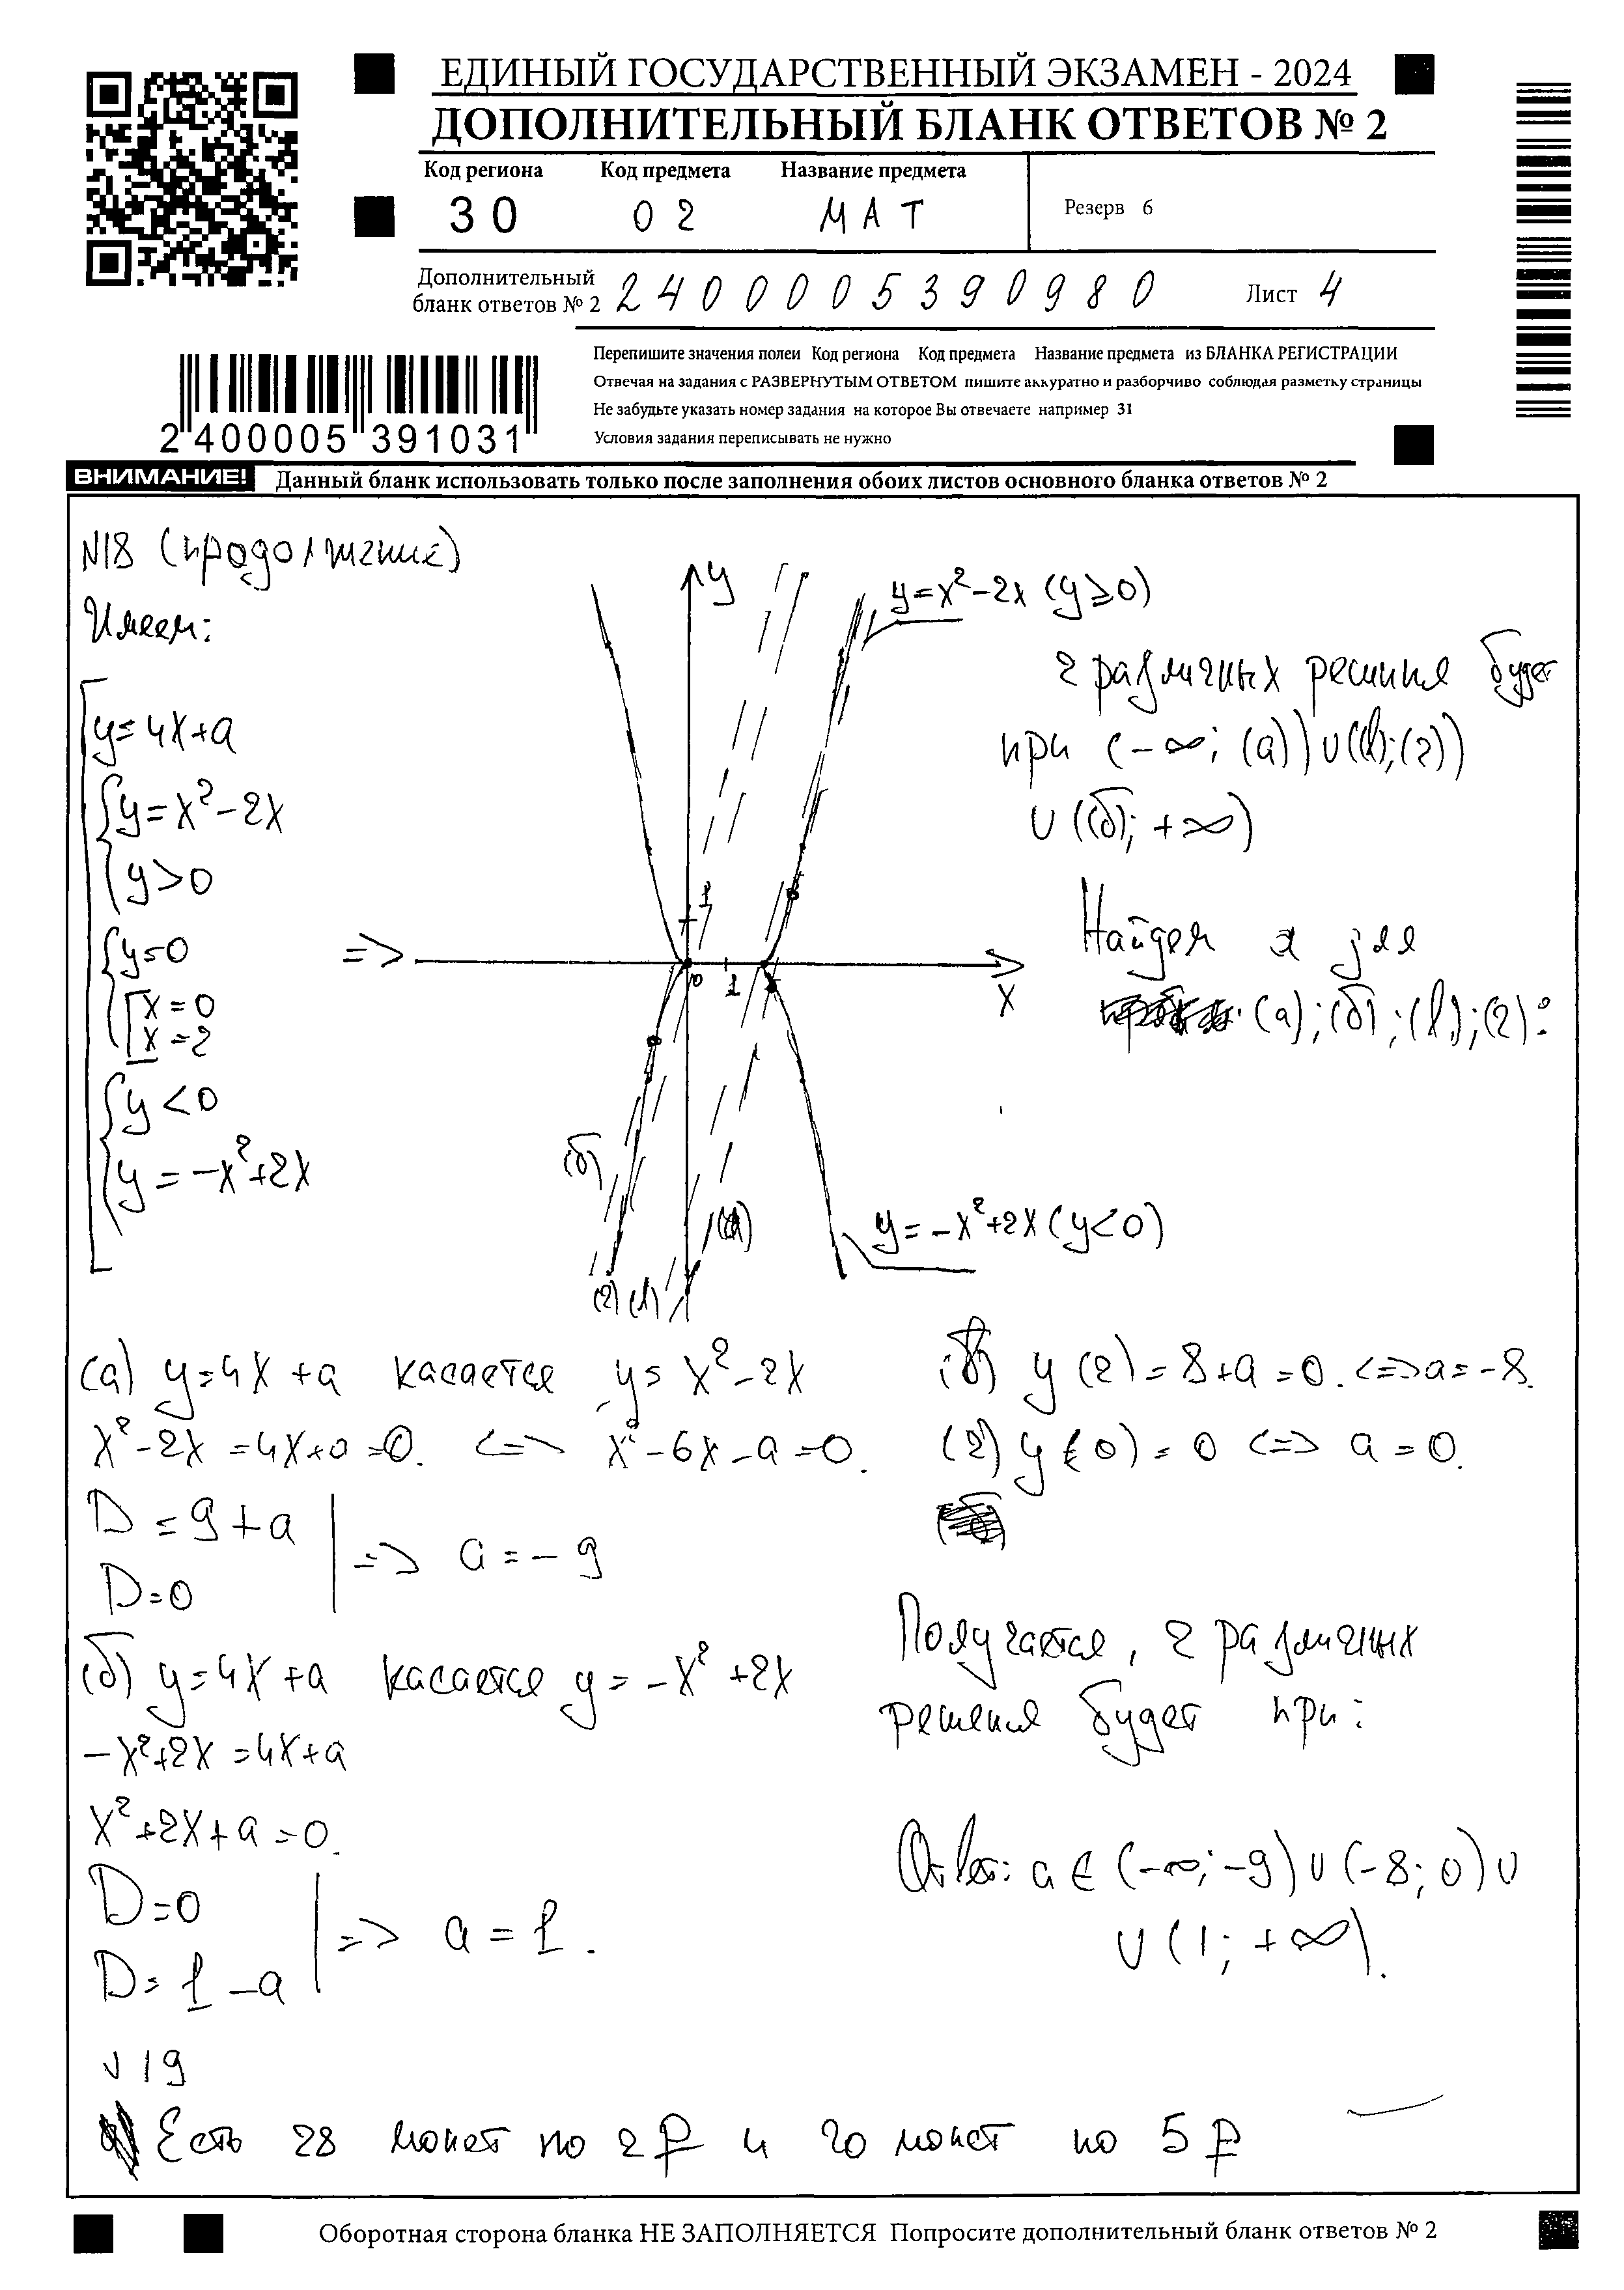 ЕДИНЫЙ ГОСУДАРСТВЕННЫЙ ЭКЗАМЕН - 2024
ДОПОЛНИТЕЛЬНЫЙ БЛАНК ОТВЕТОВ № 2
Код региона Код предмета Название предмета
30 02 МАТ
Резерв 6
Дополнительный
бланк ответов № 2 2400005390980 Лист 4
Перепишите значения полей Код региона Код предмета Название предмета из БЛАНКА РЕГИСТРАЦИИ
Отвечая на задания с РАЗВЕРНУТЫМ ОТВЕТОМ пишите аккуратно и разборчиво соблюдая разметку страницы
Не забудьте указать номер задания на которое Вы отвечаете например 31
Условия задания переписывать не нужно
2 400005 391031
ВНИМАНИЕ! Данный бланк использовать только после заполнения обоих листов основного бланка ответов № 2
N18 (продолжение)
Имеем:
y=4x+a
y=x²-2x
y>0
y=0
x=0
x=2
y<0
y=-x²+2x
=>
y
1
0
1
x
y=x²-2x (y≥0)
y=-x²+2x (y<0)
(б)
(г) (в)
(а)
2 различных решения будет
при (-∞; (а)) ∪ ((в); (г))
∪ ((б); +∞)
Найдем a для
(а); (б); (в); (г):
(а) y=4x+a касается y=x²-2x
x²-2x=4x+a=0. <=> x²-6x-a=0.
D=9+a
D=0
=> a=-9
(б) y=4x+a касается y=-x²+2x
-x²+2x=4x+a
x²+2x+a=0.
D=0
D=1-a
=> a=1.
(в) y(2)=8+a=0. <=> a=-8.
(г) y(0)=0 <=> a=0.
Получается, 2 различных
решения будет при:
Ответ: a∈(-∞;-9)∪(-8;0)∪
∪(1;+∞).
√19
Есть 28 монет по 2₽ и 20 монет по 5₽
Оборотная сторона бланка НЕ ЗАПОЛНЯЕТСЯ Попросите дополнительный бланк ответов № 2